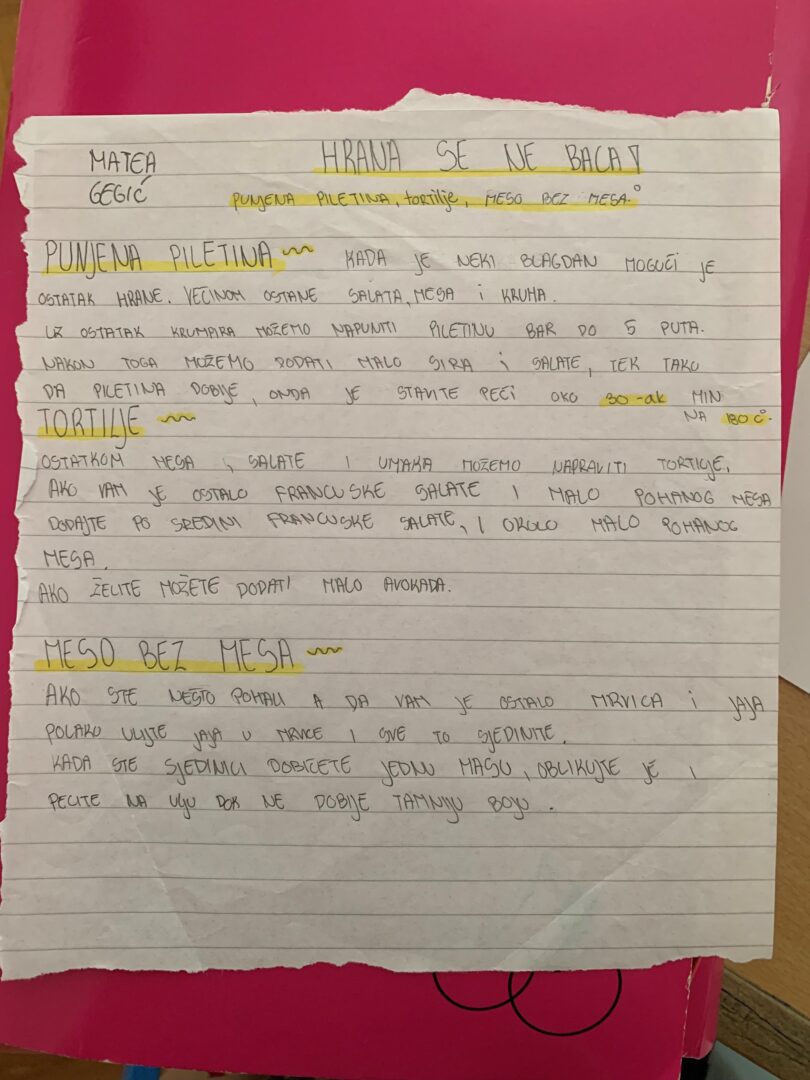 MATEA
GEGIĆ
HRANA SE NE BACA!
PUNJENA PILETINA, tortilje, MESO BEZ MESA.
PUNJENA PILETINA KADA JE NEKI BLAGDAN MOGUĆI JE
OSTATAK HRANE. VEĆINOM OSTANE SALATA, MESA i KRUHA.
UZ OSTATAK KRUMPIRA MOŽEMO NAPUNITI PILETINU BAR DO 5 PUTA.
NAKON TOGA MOŽEMO DODATI MALO SIRA i SALATE, TEK TAKO
DA PILETINA DOBIJE, ONDA JE STAVITE PEĆI OKO 30-ak MIN
NA 180 C°.
TORTILJE
OSTATKOM MESA, SALATE I UMAKA MOŽEMO NAPRAVITI TORTILJE,
AKO VAM JE OSTALO FRANCUSKE SALATE I MALO POHANOG MESA
DODAJTE PO SREDINI FRANCUSKE SALATE, I OKOLO MALO POHANOG
MESA.
AKO ŽELITE MOŽETE DODATI MALO AVOKADA.
MESO BEZ MESA
AKO STE NEŠTO POHALI A DA VAM JE OSTALO MRVICA i JAJA
POLAKO ULIJTE JAJA U MRVICE I SVE TO SJEDINITE.
KADA STE SJEDINILI DOBIĆETE JEDNU MASU, OBLIKUJTE JE I
PECITE NA ULJU DOK NE DOBIJE TAMNIJU BOJU.